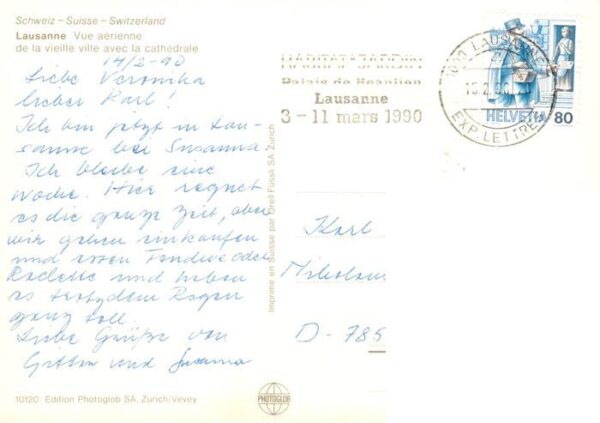 Schweiz – Suisse – Switzerland
Lausanne Vue aérienne
de la vieille ville avec la cathédrale
14/2-90
Liebe Veronika
lieber Karl!
Ich bin jetzt in Lau-
sanne bei Susanna.
Ich bleibe eine
Woche. Hier regnet
es die ganze Zeit, aber
wir gehen einkaufen
und essen Fondue oder
Raclette und haben
es trotz dem Regen
ganz toll.
Liebe Grüße von
und Susanna
10120 Edition Photoglob SA, Zurich/Vevey
Imprimé en Suisse par Orell Füssli SA Zurich
PHOTOGLOB
Palais de Beaulieu
Lausanne
3 – 11 mars 1990
1000 LAUSANNE
15.2.90
EXP. LETTRES
HELVETIA 80
Karl
D - 785